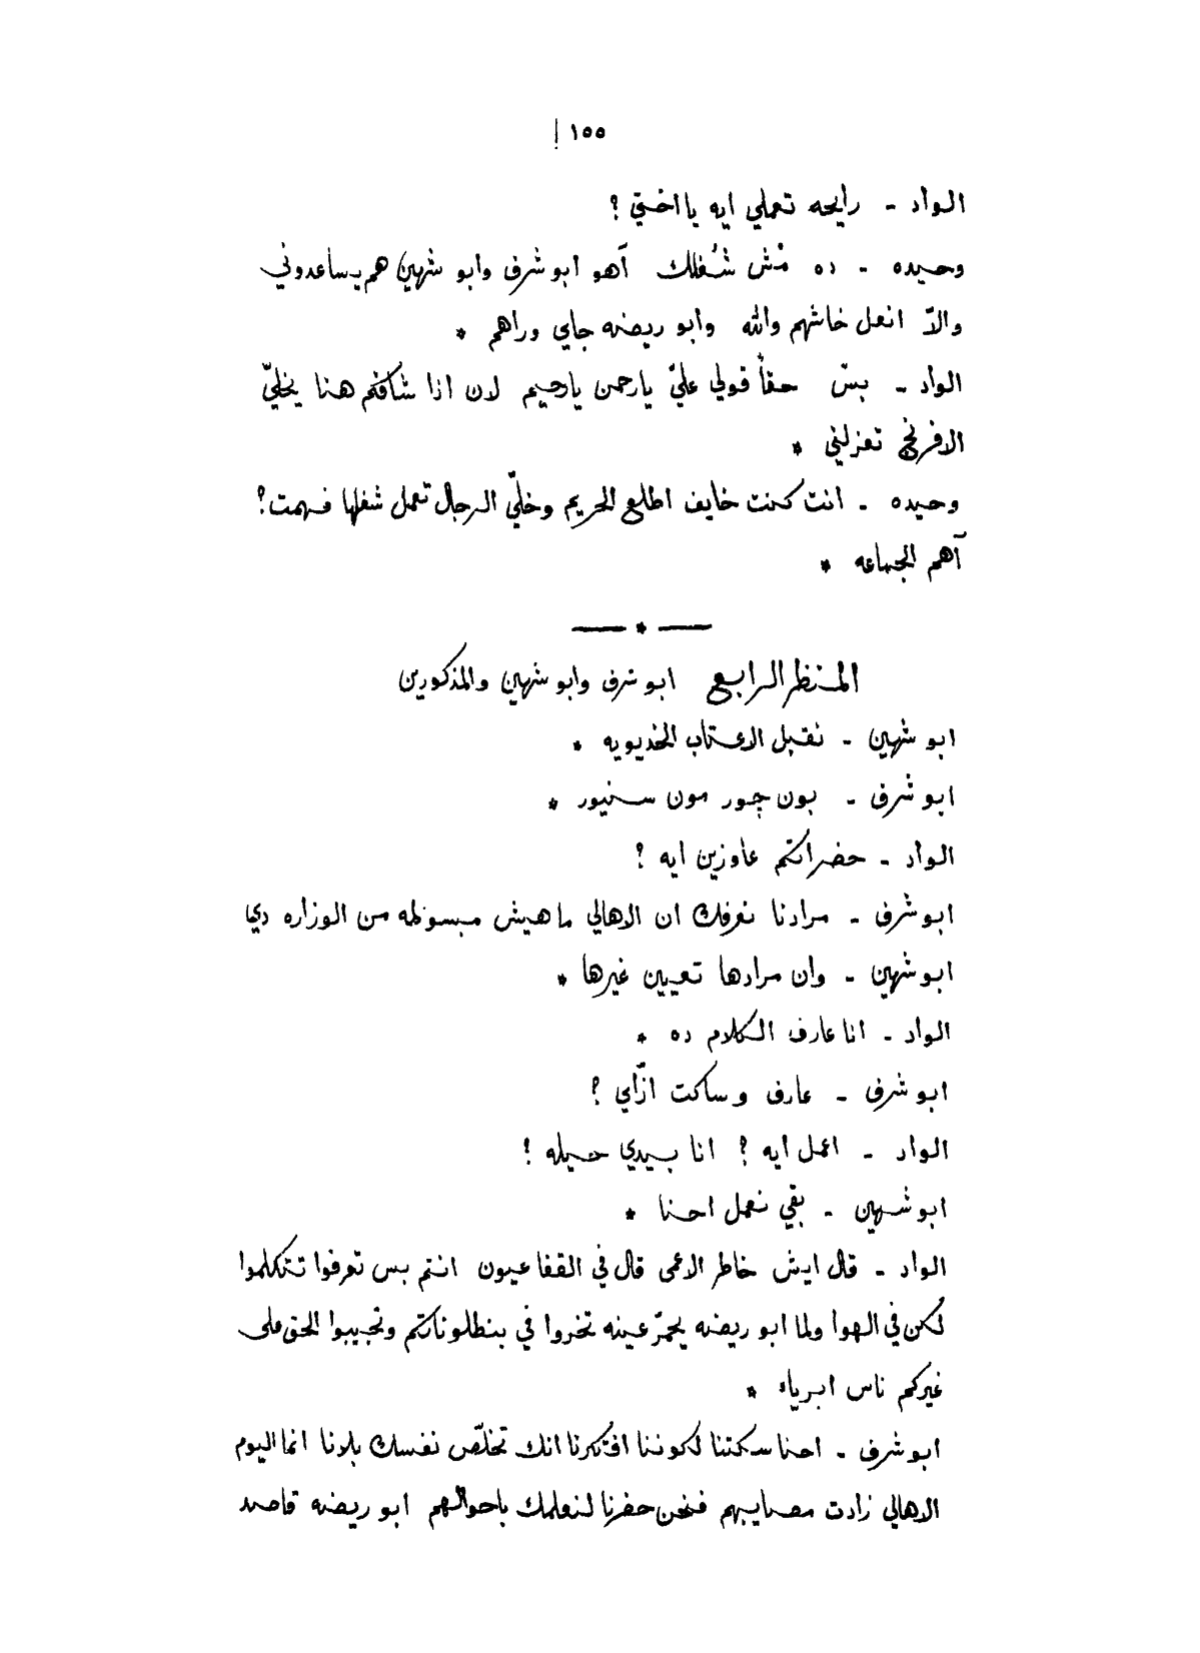 ١٥٥
الواد - رايحه تعملي ايه يااختي ؟
وحيده - ده مُش شُغلك آهو ابو شرف وابو شهين هم يساعدوني
والاّ انعل خاشهم والله وابو ريضه جاي وراهم *
الواد - بسّ حقاً قولي عليّ يارحمن يارحيم لان اذا شافكم هنا يخليّ
الافرنج تعزلني *
وحيده - انت كنت خايف اطلع الحريم وخليّ الرجال تعمل شغلها فهمت؟
آهم الجماعه *
— * —
المنظر الرابع ابو شرف وابو شهين والمذكورين
ابو شهين - نقبل الاعتاب الخديويه *
ابو شرف - بون جور مون سنيور *
الواد - حضراتكم عاوزين ايه ؟
ابو شرف - مرادنا نعرفك ان الاهالي ماهيش مبسوطه من الوزاره دي
ابو شهين - وان مرادها تعيين غيرها *
الواد - انا عارف الكلام ده *
ابو شرف - عارف وساكت ازّاي ؟
الواد - اعمل ايه ؟ انا بيدي حيله !
ابو شهين - بقي نعمل احنا *
الواد - قال ايش خاطر الاعمى قال في القفا عيون انتم بس تعرفوا تتكلموا
لكن في الهوا ولما ابو ريضه يحمرّ عينه تخروا في بنطلوناتكم وتجيبوا الحق على
غيركم ناس ابرياء *
ابو شرف - احنا سكتنا لكوننا افتكرنا انك تخلّص نفسك بلانا انما اليوم
الاهالي زادت مصايبهم فنحن حضرنا لنعلمك باحوالهم ابو ريضه قاصد